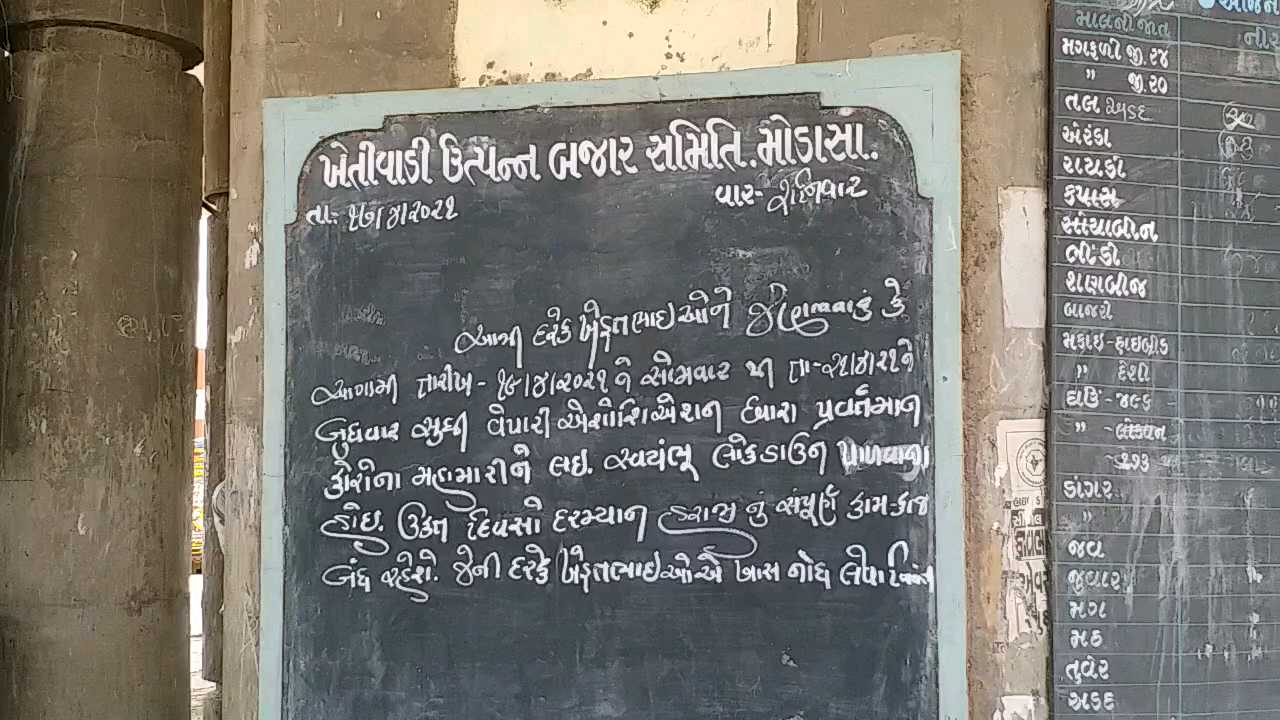 ખેતીવાડી ઉત્પન્ન બજાર સમિતિ. મોડાસા.
તા: ૧૭/૪/૨૦૨૧
વાર- શનિવાર
આથી દરેક ખેડૂતભાઇઓને જણાવવાનું કે
આગામી તારીખ - ૧૯/૪/૨૦૨૧ ને સોમવાર થી તા-૨૧/૪/૨૧ને
બુધવાર સુધી વેપારી એશોશિએશન દ્વારા પ્રવર્તમાન
કોરોના મહામારીને લઇ. સ્વયંભૂ લોકડાઉન પાળવાના
હોઇ. ઉકત દિવસો દરમ્યાન હરાજી નું સંપૂર્ણ કામ-કાજ
બંધ રહેશે. જેની દરેક ખેડૂતભાઇઓએ ખાસ નોંધ લેવા વિનંતી
માલની જાત
મગફળી જી.૨૪
" જી.૨૦
તલ
એરંડા
રાયડો
કપાસ
સોયાબીન
ભીંડી
શણબીજ
બાજરી
મકાઇ-હાઇબ્રીડ
" દેશી
ઘઉં -૪૯૬
" -લોકવન
૨૭૩
ડાંગર
"
જવ
જુવાર
મગ
મઠ
તુવેર
અડદ